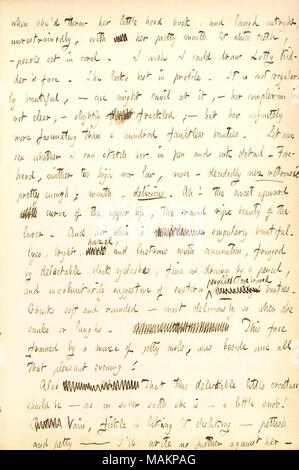 when she'd throw her little head back, and laugh outright,
unrestrainedly, with her pretty mouth & white teeth
- pearls set in coral. I wish I could draw Lotty Kid-
der's face. She looks best in profile. It is not regular-
ly beautiful, - one might cavil at it, - her complexion is
not clear, - slightly freckled; - but how infinitely
more fascinating than a hundred faultless beauties. Let me
see whether I can sketch her in pen and ink detail. Fore-
head, neither too high nor low, nose - decidedly non
pretty enough; mouth delicious. Ah! the sweet upward
curve of the upper lip, the round ripe beauty of the
lower. And her chin is singularly beautiful.
Eyes, bright hazel and lustrous with animation, fringed
by delectable black eyelashes, fine as drawn by a pencil,
and involuntarily suggestive of eastern beauties.
Cheeks soft and rounded - most deliciously so when she
smiles or laughs. This face
framed by a maze of jetty curls, was beside me all
that pleasant evening!
Alas That this delectable little creature
should be - as in sober sooth she is - a little snob!
Vain, fickle in liking & disliking - pettish
and petty - I'll write no further against her -
alamy
Image ID: MAKPAG
www.alamy.com